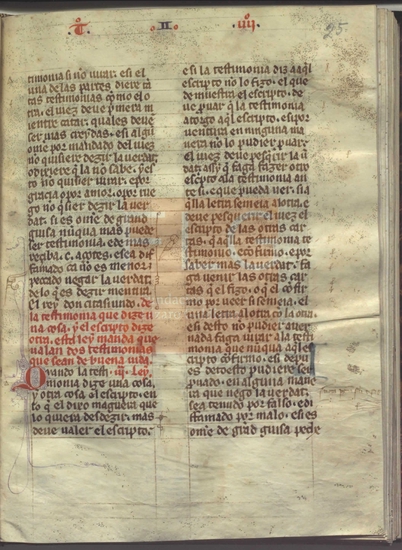 T. II. IIII
25
timonia si no uuar. e si el
una delas partes diere cͣ
tas testimonias cõmo el o
tro, el iuez deue pͥmera m̃
ientre catar, quales deue
ser mas creydas. e si algũ
ome por mãdado del iuez
no quisiere dezir la uerdat,
o dixiere q̃ la no sabe, y es
to no quisier iurar, e por
gracia o por amor, o por mie
do no q̃ sier dezir la uer
dat, si es ome de grand
guisa nũqua mas puede
ser testimonia, e de mas
reciba .c. açotes, e sea dis
famado
negar la uerdat
dezir mentira.
El rey don
la testimonia que dize u
na cosa, y el escripto dize
otra. esta ley manda que
ualan dos testimonias
que sean de buena uida.
Quando la testi- iij. Ley.
monia dize una cosa,
y otra cosa el escripto, en
lo q̃ el dixo maguera que
lo quiera desdezir, mas
deue ualer el escripto.
e si la testimonia diz a aq̃l
escripto no lo fizo, el que
demuestra el escripto, de
ue puar q̃ la testimonia
otorgo aq̃l escripto, e si por
uentura en ninguna ma
nera no lo pudier puar,
el iuez deue pesq̃rir la ũ
dat, assy q̃ faga fazer otro
escripto a la testimonia an
te si, que pueda uer, si a
q̃lla letra semeia a lotra, e
deue pesquerir el iuez el
escripto de las otras car
tas, q̃ aq̃lla testimonia te
stimonio, e cõfirmo, e por
saber mas la uerdat, fa
ga uenir las otras cartas
que el fizo, o que el cõfir
mo por ueer si semeia, el
una letra a lotra cõ la otra.
e si desto no pudiere auer
nada faga iurar a la testi
monia que nũqua aq̃l es
cripto cõfirmo. e si depues
es de todesto pudiere ser
puado, en alguna mane
ra que nego la uerdat,
sea tenudo por falso, e di
sfamado por malo, e si es
ome de grãd guisa peche